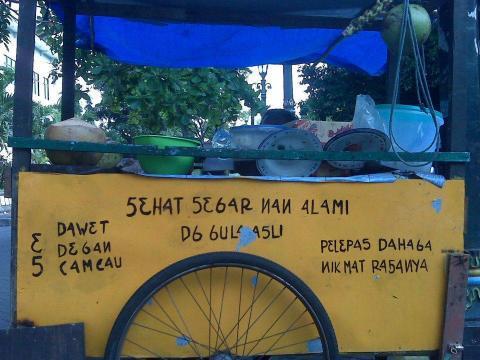 SEHAT SEGAR NAN ALAMI
DG GULA ASLI
E DAWET
DEGAN
S CAMCAU
PELEPAS DAHAGA
NIKMAT RASANYA